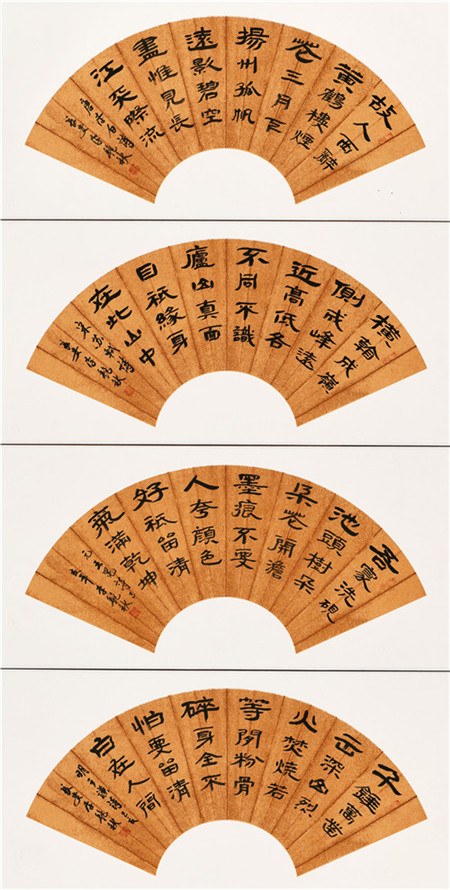 故人西辭
黃鶴樓煙
花三月下
揚州孤帆
遠影碧空
盡惟見長
江天際流
唐李白詩
橫看成嶺
側成峰遠
近高低各
不同不識
廬山真面
目祇緣身
在此山中
宋苏軾詩
吾家洗硯
池頭樹朵
朵花開澹
墨痕不要
人夸顏色
好祇留清
氣滿乾坤
元王冕詩
千錘萬鑿
出深山烈
火焚燒若
等閒粉骨
碎身全不
怕要留清
白在人間
明于謙詩